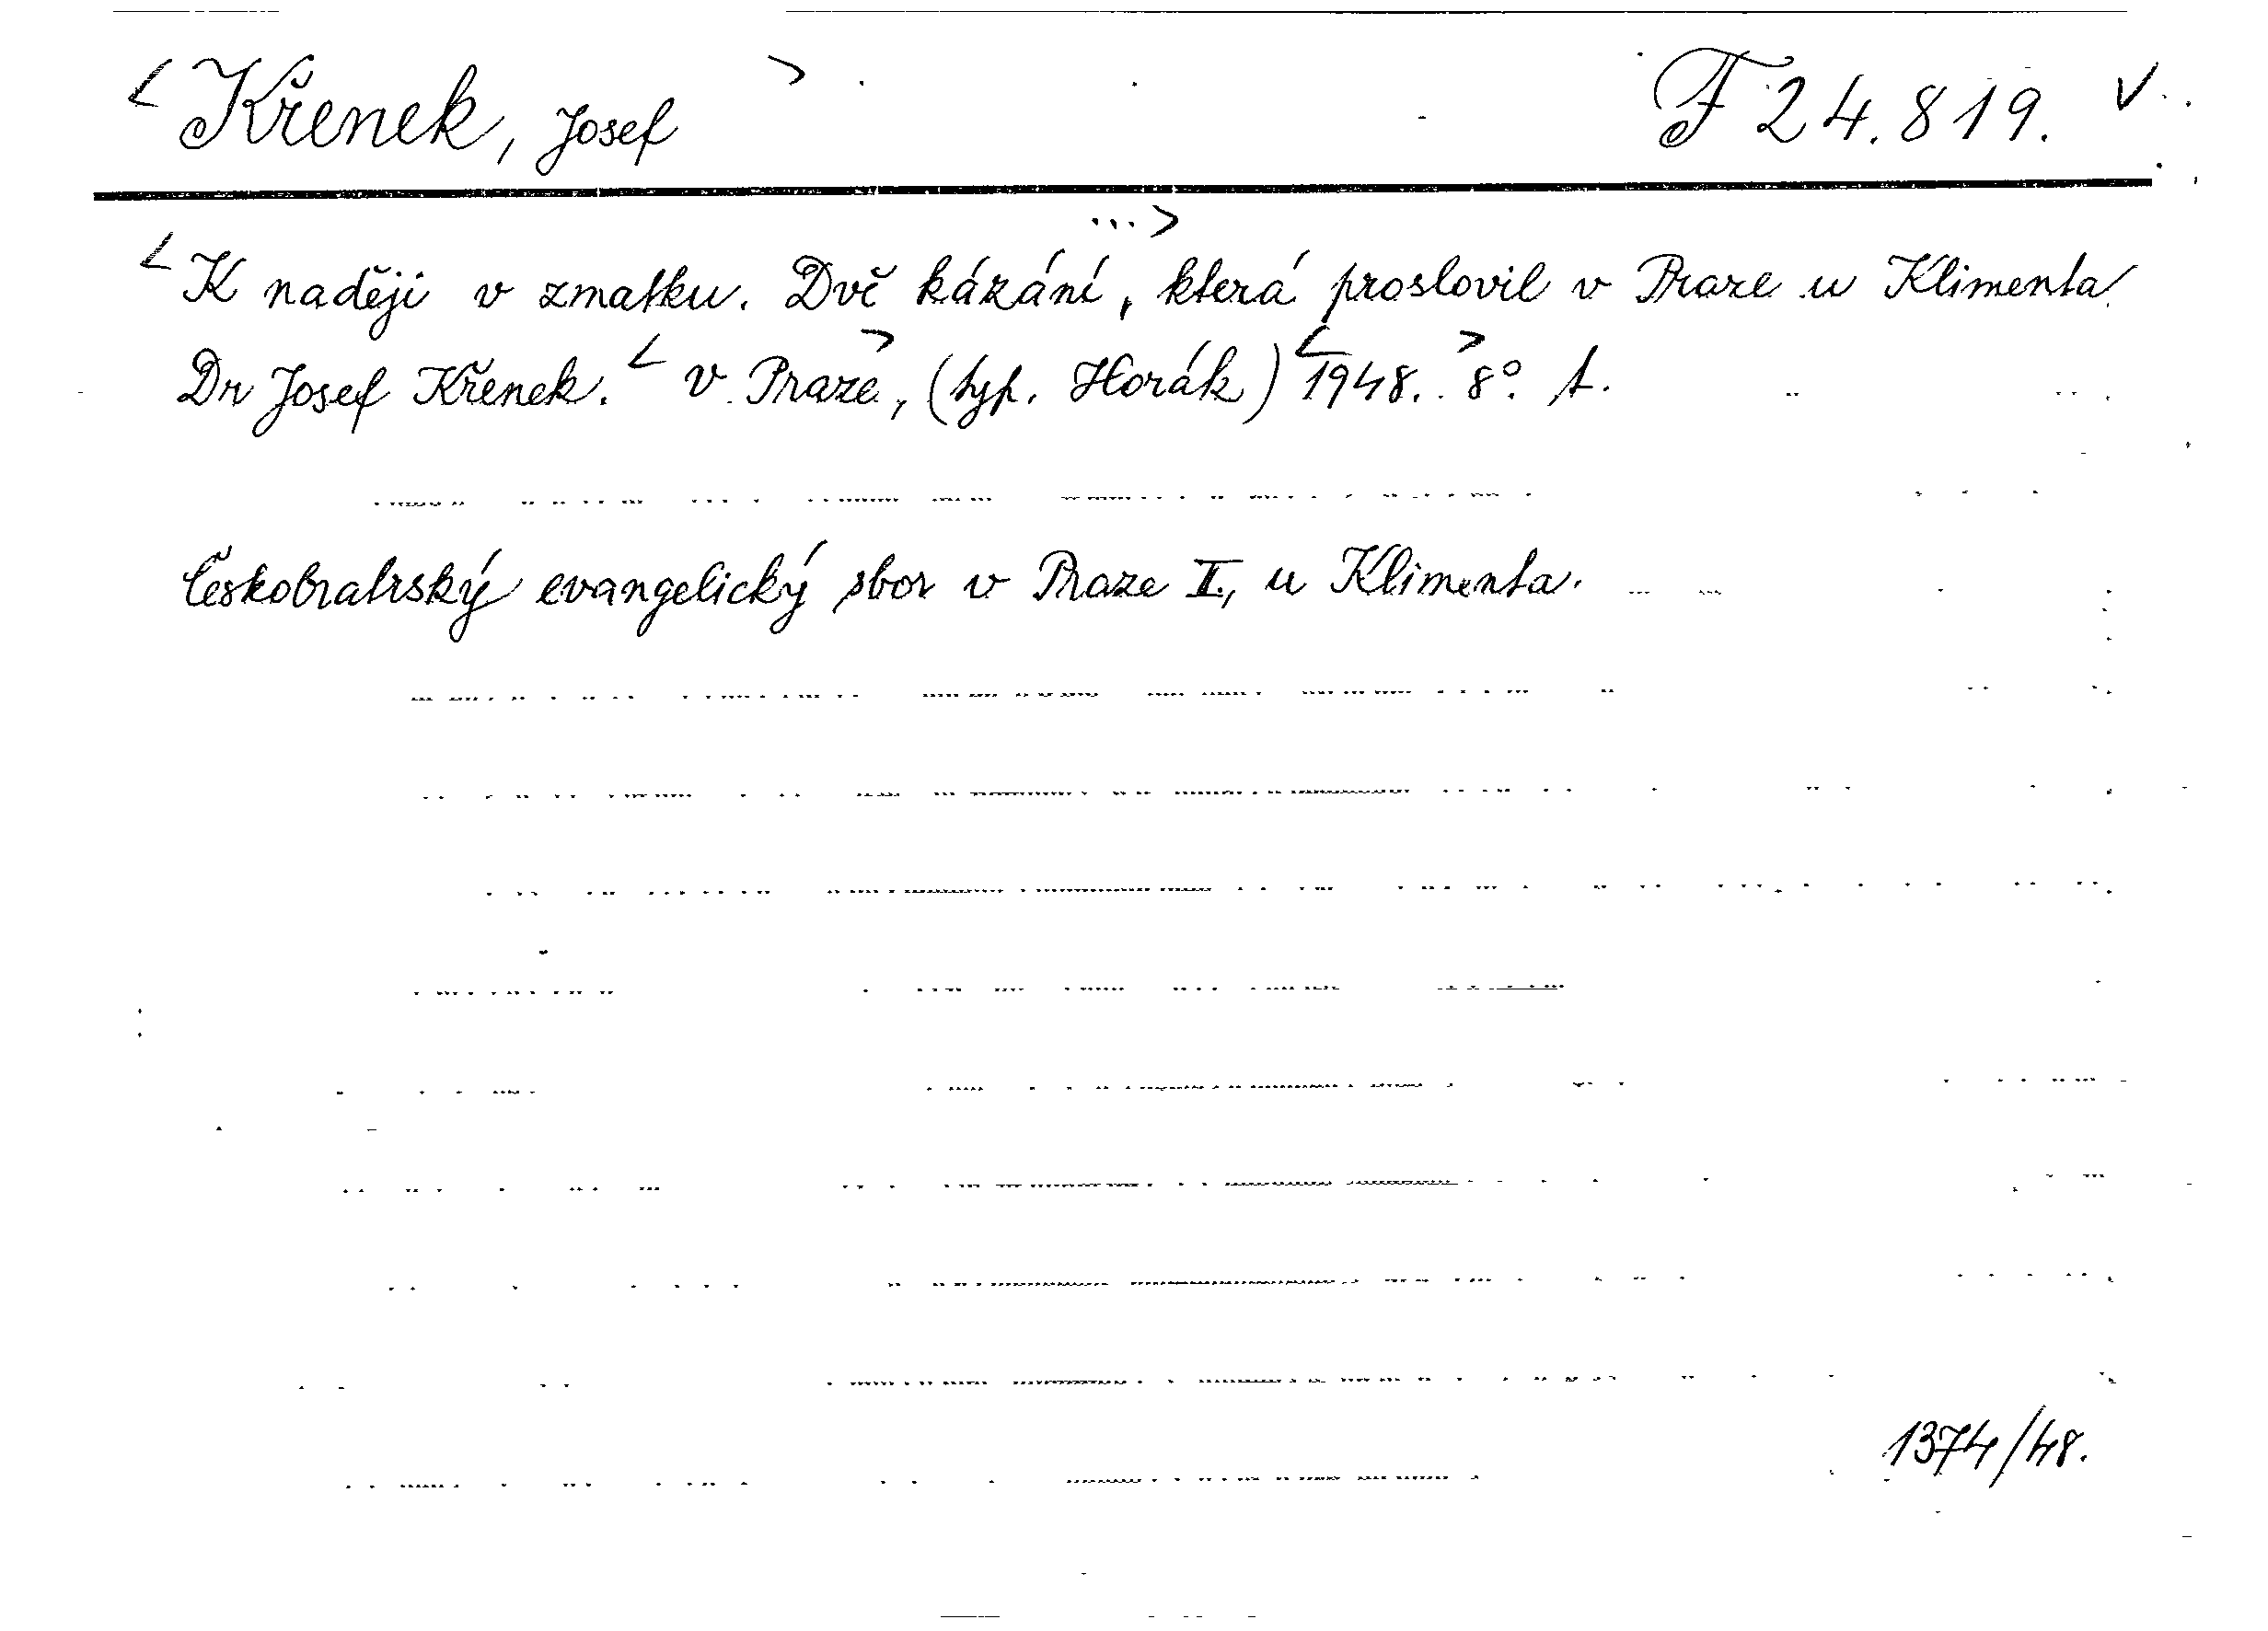 < Křenek, Josef > F 24.819. v
...>
< K naději v zmatku. Dvě kázání, která proslovil v Praze u Klimenta
Dr Josef Křenek. < v Praze >, (typ. Horák) < 1948. > 8°. t.
Českobratrský evangelický sbor v Praze II., u Klimenta.
1374/48.